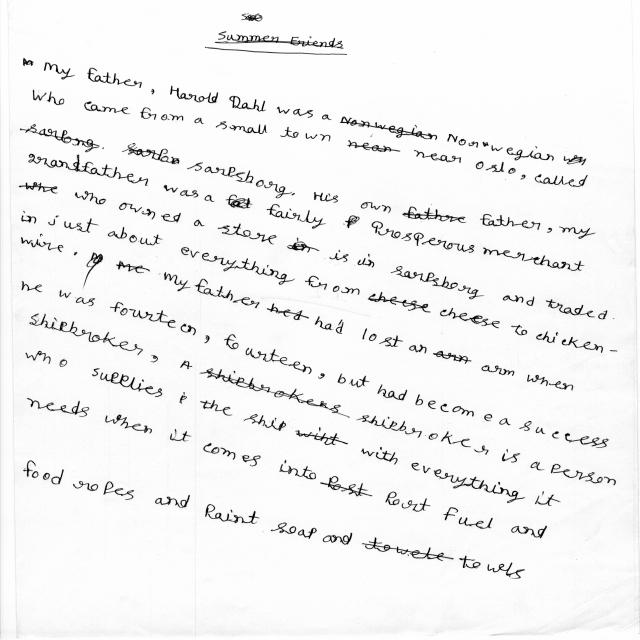 Summer Friends
My father, Harold Dahl was a Norwegian Norwegian
who came from a small town near near Oslo, called
sarbong. sarfan sarpsborg. His own fathre father, my
grandfather was a fairly Prosperous merchant
who who owned a store in is in sarpsborg and traded.
in just about everything from cheese cheese to chicken-
wire. me my father hed had lost an arm arm when
he was fourteen, fourteen, but had become a success
shipbroker, A shipbrokers shipbroker is a person
who supplies the ship wiht with everything it
needs when it comes into Post Port fuel and
food ropes and Paint soap and towele towls